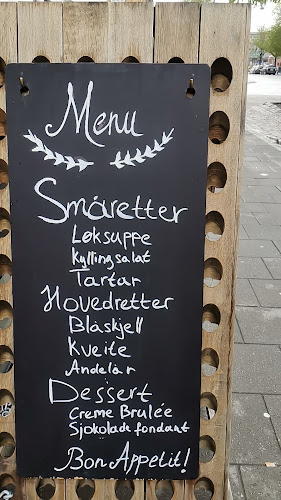 Menu
Småretter
Løksuppe
Kyllingsalat
Tartar
Hovedretter
Blåskjell
Kveite
Andelår
Dessert
Creme Brulée
Sjokoladefondant
Bon Appetit!